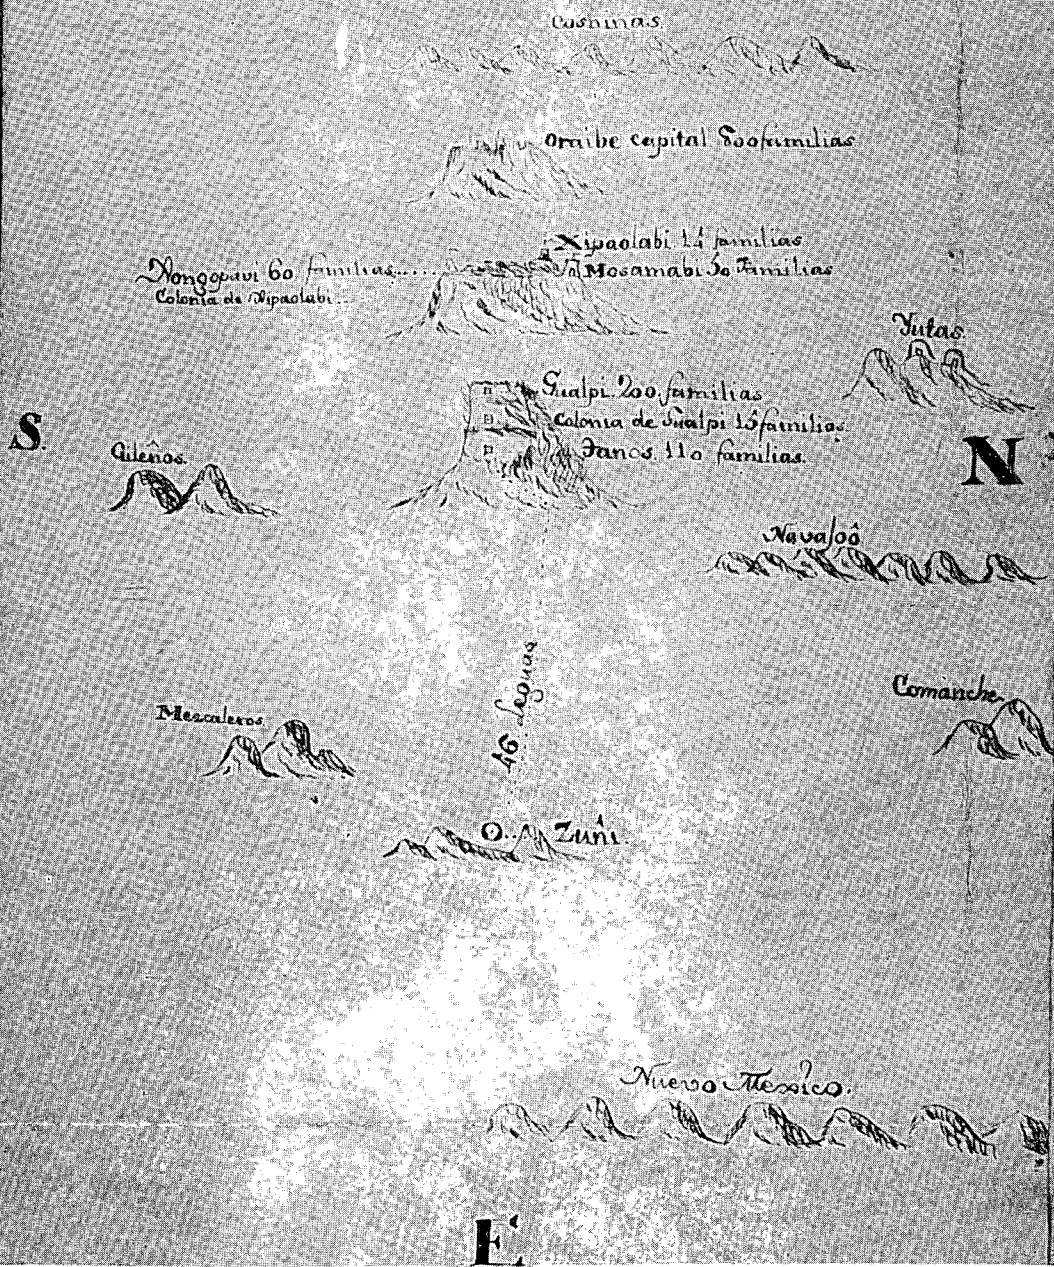 Cosninas
Oraibe capital 800 familias
Xipaolabi 14 familias
Mosamabi 50 Familias
Xongopavi 60 familias......
Colonia de Xipaolabi...
Yutas.
Gualpi. 200. familias
Colonia de Gualpi 15 familias.
Tanos. 110 familias.
S.
N
Gileños.
Navajoô
46 Leguas
Comanche
Mescaleros
O.. Zuñi.
Nuevo Mexico.
E